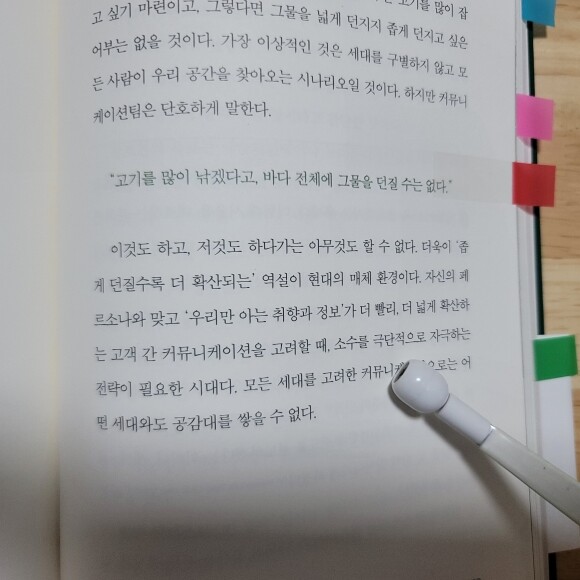 고기를 많이 잡
고 싶기 마련이고, 그렇다면 그물을 넓게 던지지 좁게 던지고 싶은
어부는 없을 것이다. 가장 이상적인 것은 세대를 구별하지 않고 모
든 사람이 우리 공간을 찾아오는 시나리오일 것이다. 하지만 커뮤니
케이션팀은 단호하게 말한다.
“고기를 많이 낚겠다고, 바다 전체에 그물을 던질 수는 없다.”
이것도 하고, 저것도 하다가는 아무것도 할 수 없다. 더욱이 ‘좁
게 던질수록 더 확산되는’ 역설이 현대의 매체 환경이다. 자신의 페
르소나와 맞고 ‘우리만 아는 취향과 정보’가 더 빨리, 더 넓게 확산하
는 고객 간 커뮤니케이션을 고려할 때, 소수를 극단적으로 자극하는
전략이 필요한 시대다. 모든 세대를 고려한 어
떤 세대와도 공감대를 쌓을 수 없다.